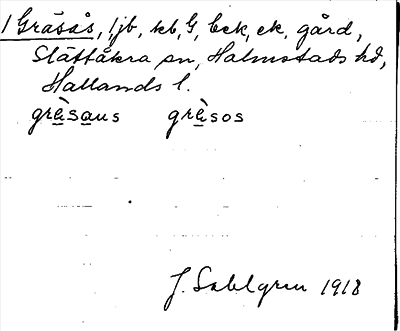 1 Gräsås, 1/jb, kb, G, bek, ek, gård,
Slättåkra sn, Halmstads hd,
Hallands l.
gräsaus gräsos
J. Sahlgren 1918